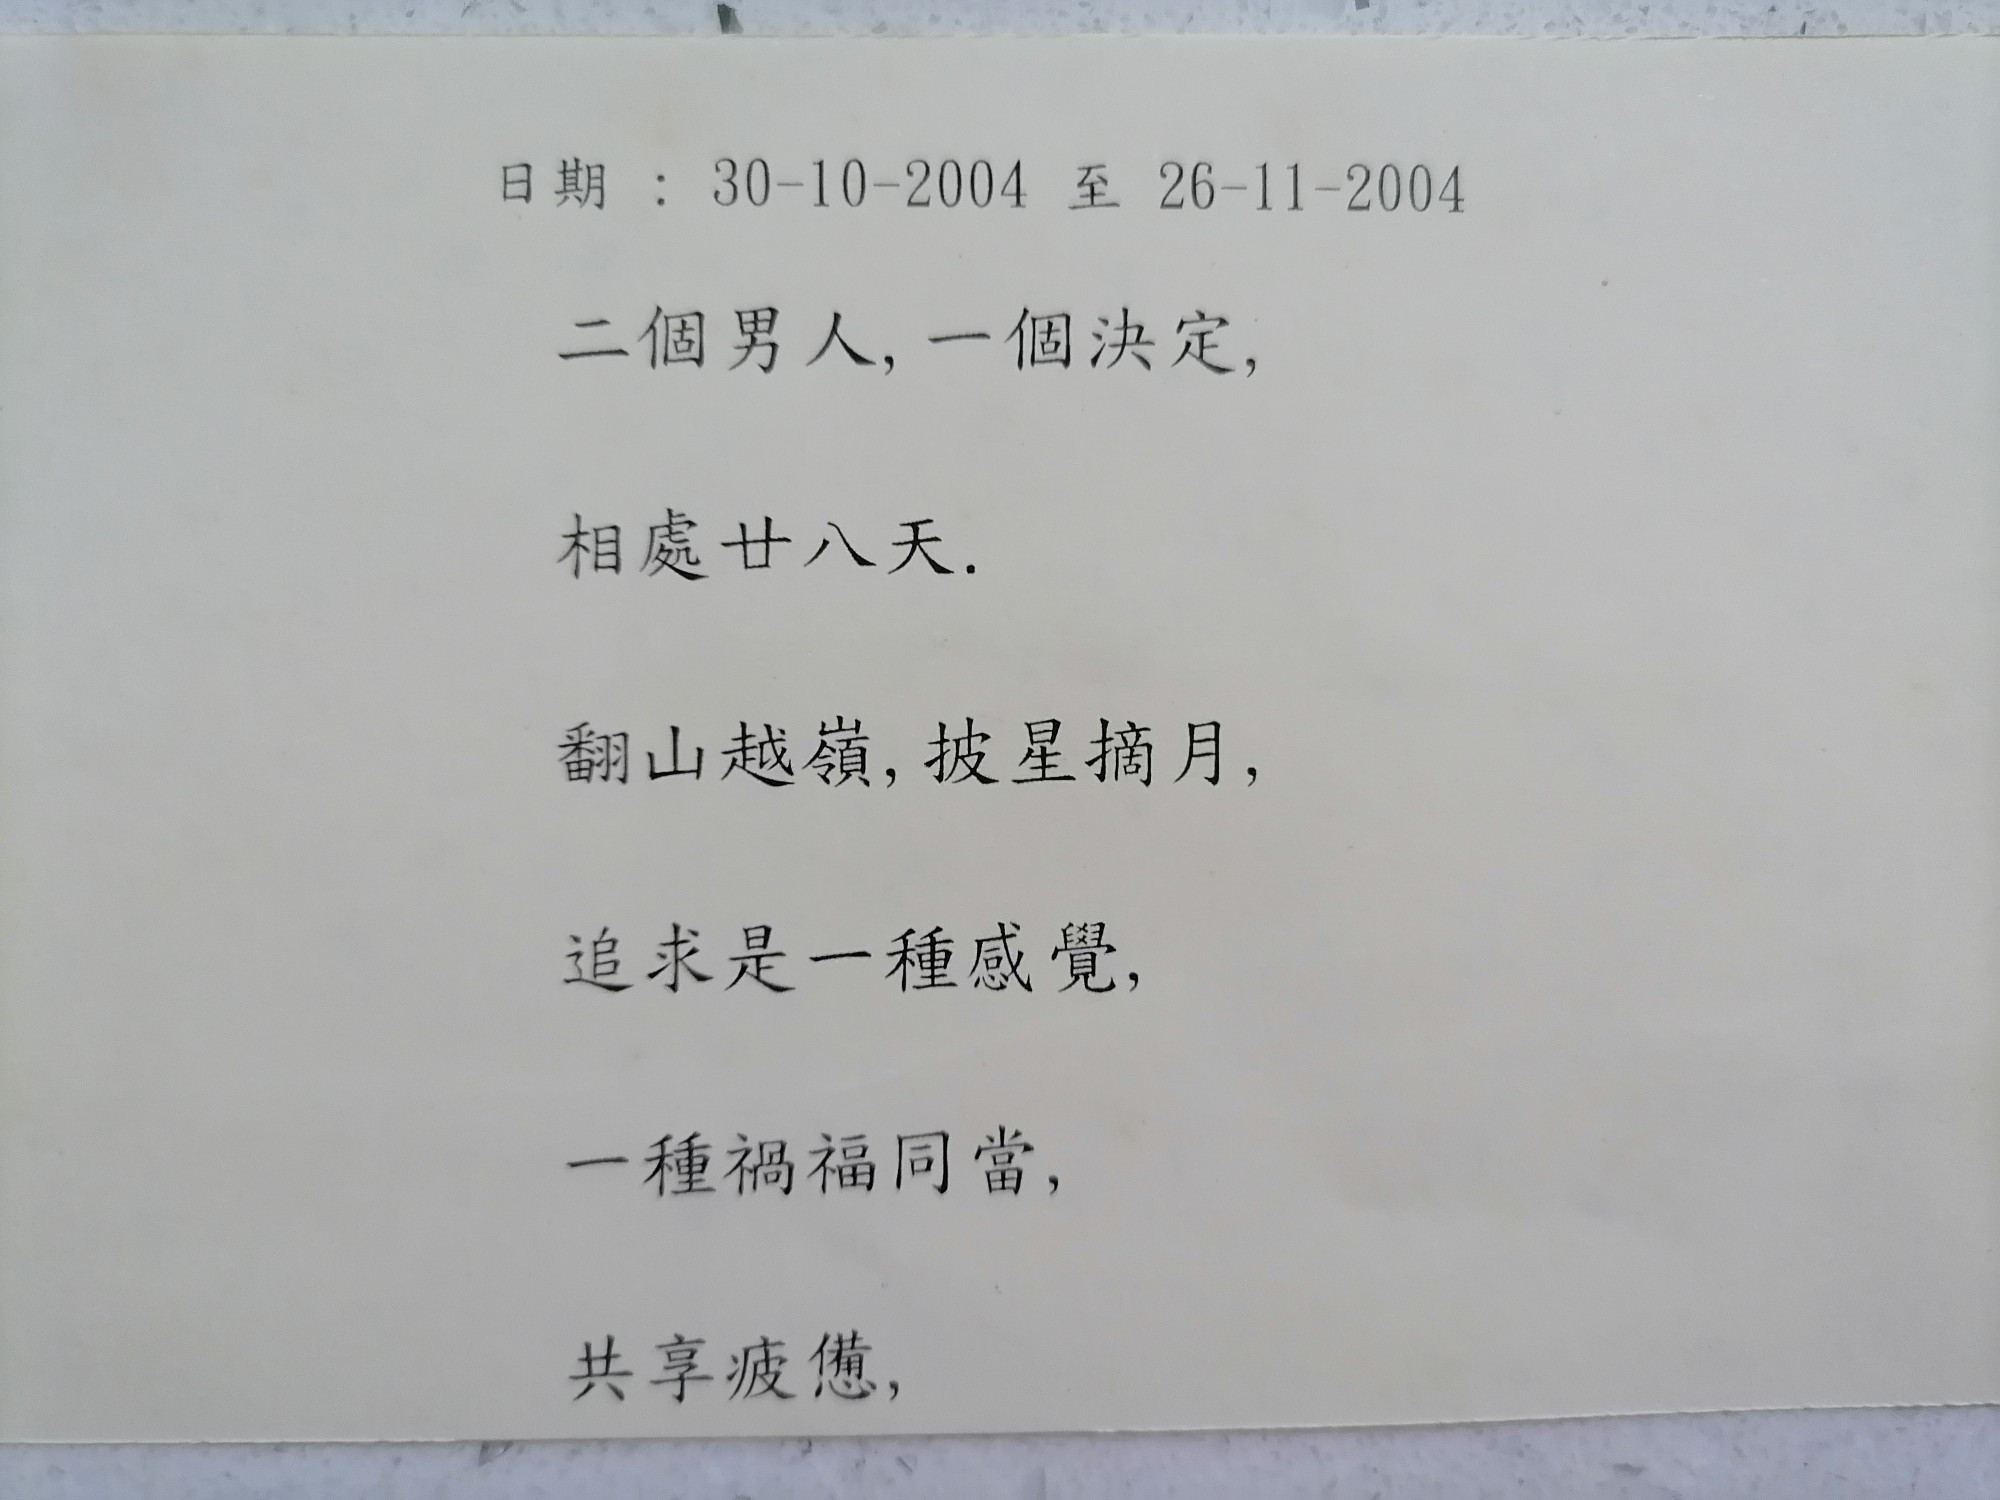 日期 : 30-10-2004 至 26-11-2004
二個男人,一個決定,
相處廿八天.
翻山越嶺,披星摘月,
追求是一種感覺,
一種禍福同當,
共享疲憊,